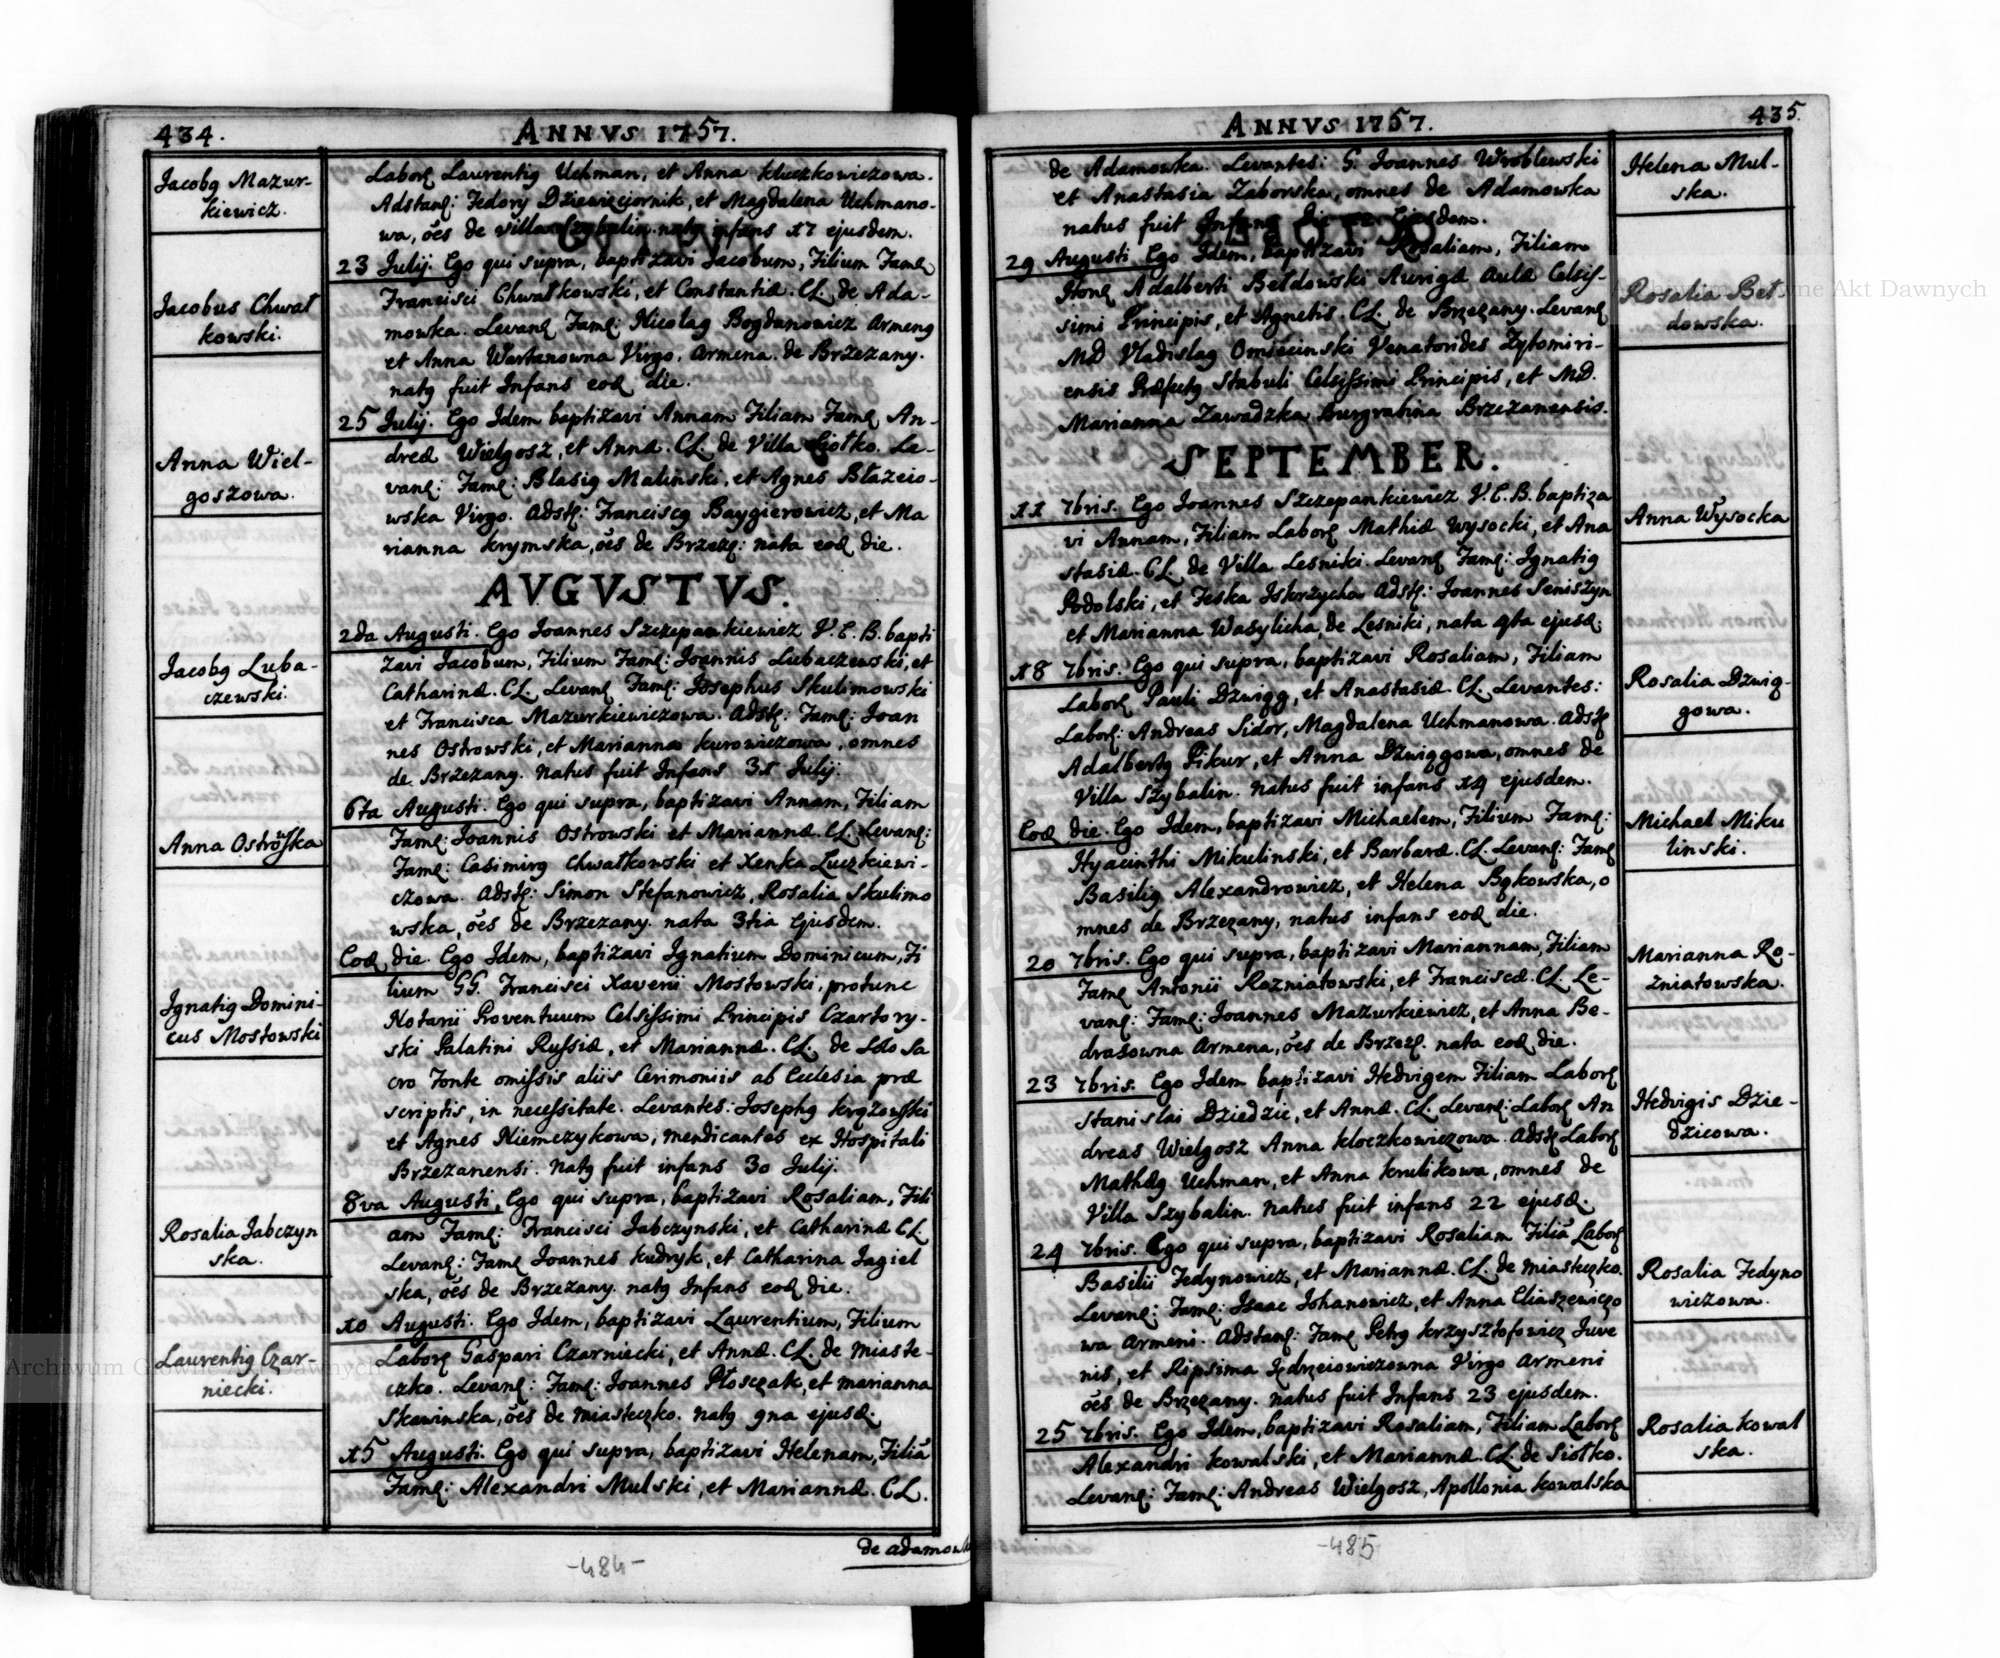 434.
ANNVS 1757.
Jacobꝯ Mazur-
kiewicz.
Laborꝭ Laurentiꝯ Uchman, et Anna Kluczkowiczowa.
Adstanꝭ: Fedory Dziewięciornik, et Magdalena Uchmano-
wa, oẽs de villa Szybalin. natꝯ infans 17 ejusdem.
Jacobus Chwał
kowski.
23 Julij. Ego qui supra, baptizavi Jacobum, Filium Famꝭ
Francisci Chwałkowski, et Constantiæ. CL. de Ada-
mowka. Levanꝭ Famꝭ: Nicolaꝯ Bogdanowicz Armenꝯ
et Anna Wartanowna Virgo. Armena. de Brzezany.
natꝯ fuit Infans eodꝭ die.
Anna Wiel-
goszowa.
25 Julij. Ego Idem baptizavi Annam Filiam Famꝭ An-
dreæ Wielgosz, et Annæ. CL. de Villa Siołko. Le-
vanꝭ: Famꝭ: Blasiꝯ Malinski, et Agnes Błazeio-
wska Virgo. Adstꝭ: Franciscꝯ Baygierowicz, et Ma
rianna Krymska, oẽs de Brzezꝭ: nata eodꝭ die.
AVGVSTVS.
Jacobꝯ Luba-
czewski.
2da Augusti. Ego Joannes Szczepankiewicz V. C. B. bapti
zavi Jacobum, Filium Famꝭ: Joannis Lubaczewski, et
Catharinæ. CL. Levanꝭ Famꝭ: Josephus Skulimowski
et Francisca Mazurkiewiczowa. Adstꝭ: Famꝭ: Joan
nes Ostrowski, et Marianna Kurowiczowa, omnes
de Brzezany. Natus fuit Infans 31 Julij.
Anna Ostrõska
6ta Augusti. Ego qui supra, baptizavi Annam, Filiam
Famꝭ: Joannis Ostrowski et Mariannæ. CL. Levanꝭ:
Famꝭ: Casimirꝯ Chwałkowski et Xenka Luczkiewi-
czowa. Adstꝭ: Simon Stefanowicz, Rosalia Skulimo
wska, oẽs de Brzezany. nata 3tia Ejusdem.
Ignatiꝯ Domini-
cus Mostowski
Eodꝭ die. Ego Idem, baptizavi Ignatium Dominicum, Fi
lium GG. Francisci Xaverii Mostowski, protunc
Notarii Proventuum Celsissimi Principis Czartory-
ski Palatini Russiæ, et Mariannæ. CL. de Solo Sa
cro Fonte omissis aliis Cerimoniis ab Ecclesia præ
scriptis, in necessitate. Levantes: Josephꝯ Krązowski
et Agnes Niemczykowa, mendicantes ex Hospitali
Brzezanensi. Natꝯ fuit infans 30 Julij.
Rosalia Jabczyn
ska.
8va Augusti, Ego qui supra, baptizavi Rosaliam, Fili
am Famꝭ: Francisci Jabczynski, et Catharinæ CL.
Levanꝭ: Famꝭ Joannes Kudryk, et Catharina Jagiel
ska, oẽs de Brzezany. natꝯ Infans eodꝭ die.
Laurentiꝯ Czar-
niecki.
10 Augusti. Ego Idem, baptizavi Laurentium, Filium
Laborꝭ Gaspari Czarniecki, et Annæ. CL. de Miaste-
czko. Levanꝭ: Famꝭ: Joannes Płosczak, et Marianna
Skawinska, oẽs de Miasteczko. natꝯ 9na ejusdꝭ.
15 Augusti. Ego qui supra, baptizavi Helenam, Filiã
Famꝭ: Alexandri Mulski, et Mariannæ. CL.
de adamow
-484-
ANNVS 1757.
435.
Helena Mul-
ska.
de Adamowka. Levantes: G. Joannes Wroblewski
et Anastasia Zaborska, omnes de Adamowka
natus fuit Infans die 12 Ejusdem.
Rosalia Beł-
dowska.
29 Augusti. Ego Idem, baptizavi Rosaliam, Filiam
Honꝭ Adalberti Bełdowski Aurigæ Aulæ Celsis-
simi Principis, et Agnetis. CL. de Brzezany. Levanꝭ
MD Vladislaꝯ Omiecinski Venatorides Zytomiri-
ensis Præfectꝯ Stabuli Celsissimi Principis, et MD.
Marianna Zawadzka Burgrabina Brzezanensis.
SEPTEMBER.
Anna Wysocka
11 7bris. Ego Joannes Szczepankiewicz V. C. B. baptiza
vi Annam, Filiam Laborꝭ Mathiæ Wysocki, et Ana
stasiæ. CL. de Villa Lesniki. Levanꝭ Famꝭ: Ignatiꝯ
Podolski, et Feska Iskrzycha Adstꝭ: Joannes Seniszyn
et Marianna Wasylicha, de Lesniki, nata 9ta ejusdꝭ.
Rosalia Dzwię-
gowa.
18 7bris. Ego qui supra, baptizavi Rosaliam, Filiam
Laborꝭ Pauli Dzwigg, et Anastasiæ. CL. Levantes:
Laborꝭ: Andreas Sidor, Magdalena Uchmanowa. Adstꝭ
Adalbertꝯ Pikur, et Anna Dzwiggowa, omnes de
Villa Szybalin. Natus fuit infans 14 ejusdem.
Michael Miku
linski.
Eodꝭ die. Ego Idem, baptizavi Michaelem, Filium Famꝭ:
Hyacinthi Mikulinski, et Barbaræ. CL. Levanꝭ: Famꝭ
Basiliꝯ Alexandrowicz, et Helena Bąkowska, o
mnes de Brzezany, natus infans eodꝭ die.
Marianna Ro-
zniatowska.
20 7bris. Ego qui supra, baptizavi Mariannam, Filiam
Famꝭ Antonii Rozniatowski, et Franciscæ. CL Le-
vanꝭ: Famꝭ: Joannes Mazurkiewicz, et Anna Bo-
drasowna Armena, oẽs de Brzezꝭ. nata eodꝭ die.
Hedvigis Dzie-
dzicowa.
23 7bris. Ego Idem baptizavi Hedvigem Filiam Laborꝭ
Stanislai Dziedzic, et Annæ. CL. Levanꝭ: Laborꝭ An
dreas Wielgosz Anna Kloczkowiczowa. Adstꝭ Laborꝭ
Mathæꝯ Uchman, et Anna Krulikowa, omnes de
Villa Szybalin. Natus fuit infans 22 ejusdꝭ.
Rosalia Fedyno
wiczowa.
24 7bris. Ego qui supra, baptizavi Rosaliam Filiã Laborꝭ
Basilii Fedynowicz, et Mariannæ. CL. de Miasteczko.
Levanꝭ: Famꝭ: Isaac Johanowicz, et Anna Eliaszewiczo
wa Armeni. Adstanꝭ: Famꝭ Petrꝯ Krzysztofowicz Juve
nis, et Ripsima Jędrzeiowiczowna Virgo Armeni
oẽs de Brzezany. Natus fuit Infans 23 ejusdem.
Rosalia Kowal
ska.
25 7bris. Ego Idem, baptizavi Rosaliam, Filiam Laborꝭ
Alexandri Kowalski, et Mariannæ. CL. de Siołko.
Levanꝭ: Famꝭ: Andreas Wielgosz, Apollonia Kowalska
-485
Archiwum Główne Akt Dawnych
Archiwum Główne Akt Dawnych